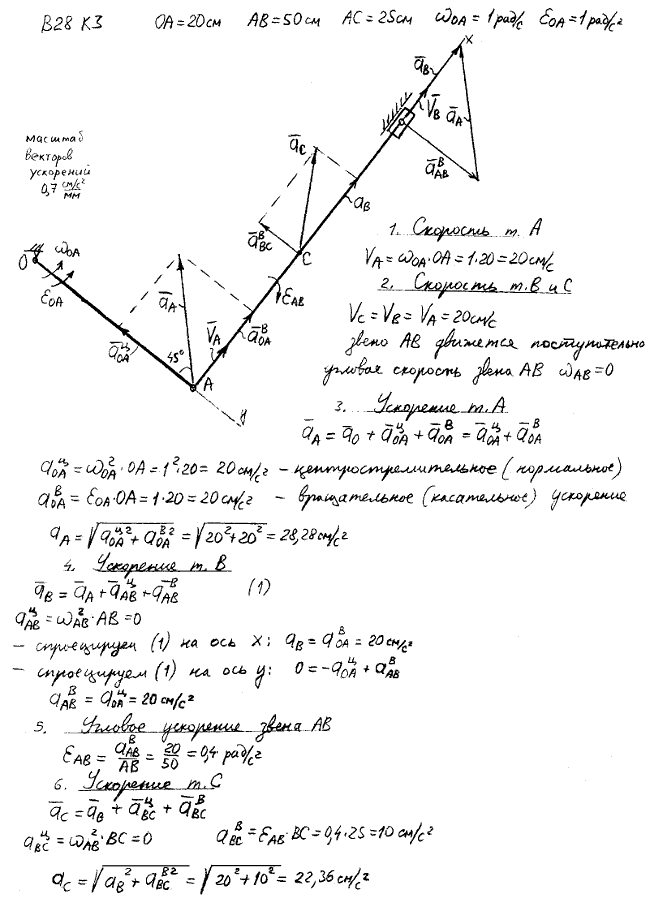 В28 К3 OA=20см AB=50см AC=25см ω_OA=1рад/с ε_OA=1рад/с²
масштаб
векторов
ускорений
0,7 см/с²/мм
x
a̅_B
V̅_B
a̅_A
a̅_AB^B
a̅_C
a̅_BC^B
a_B
C
O
ω_OA
ε_OA
ε_AB
a̅_A
V̅_A
a̅_OA^B
a̅_OA^ц
45°
A
y
1. Скорость т. А
V_A=ω_OA·OA=1·20=20см/с
2. Скорость т.В и С
V_C=V_B=V_A=20см/с
звено АВ движется поступательно
угловая скорость звена АВ ω_AB=0
3. Ускорение т.А
a̅_A=a̅_O+a̅_OA^ц+a̅_OA^B=a̅_OA^ц+a̅_OA^B
a_OA^ц=ω_OA²·OA=1²·20=20см/с² – центростремительное (нормальное)
a_OA^B=ε_OA·OA=1·20=20см/с² – вращательное (касательное) ускорение
a_A=√(a_OA^ц²+a_OA^B²)=√(20²+20²)=28,28см/с²
4. Ускорение т. В
a̅_B=a̅_A+a̅_AB^ц+a̅_AB^B (1)
a_AB^ц=ω_AB²·AB=0
– спроецируем (1) на ось x: a_B=a_OA^B=20см/с²
– спроецируем (1) на ось y: 0=-a_OA^ц+a_AB^B
a_AB^B=a_OA^ц=20см/с²
5. Угловое ускорение звена АВ
ε_AB=a_AB^B/AB=20/50=0,4рад/с²
6. Ускорение т.С
a̅_C=a̅_B+a̅_BC^ц+a̅_BC^B
a_BC^ц=ω_AB²·BC=0 a_BC^B=ε_AB·BC=0,4·25=10см/с²
a_C=√(a_B²+a_BC^B²)=√(20²+10²)=22,36см/с²